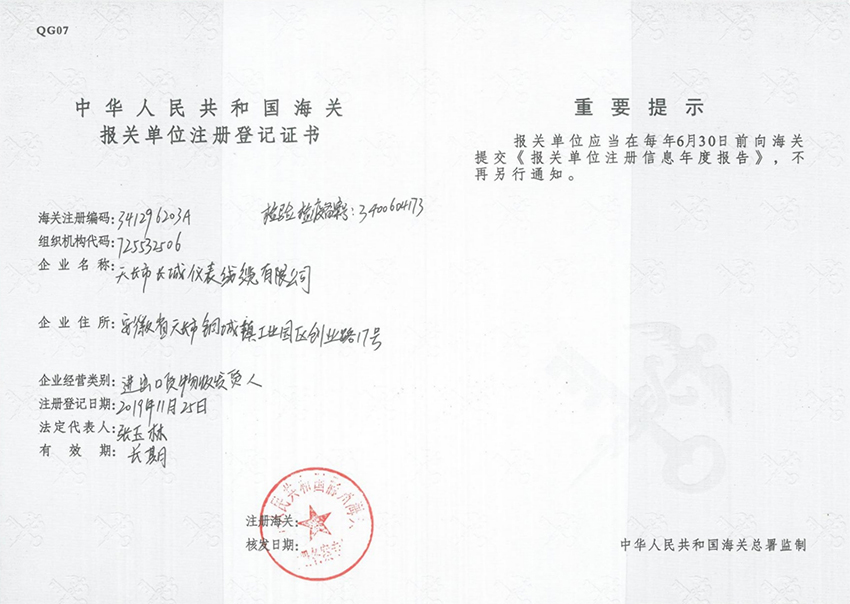 QG07
中华人民共和国海关
报关单位注册登记证书
海关注册编码：341296203A
检验检疫备案号：3400604173
组织机构代码：725532506
企业名称：天长市长城仪表线缆有限公司
企业住所：安徽省天长市铜城镇工业园区创业路17号
企业经营类别：进出口货物收发货人
注册登记日期：2019年11月25日
法定代表人：张玉林
有效期：长期
注册海关：
核发日期：
重要提示
报关单位应当在每年6月30日前向海关
提交《报关单位注册信息年度报告》，不
再另行通知。
中华人民共和国海关总署监制